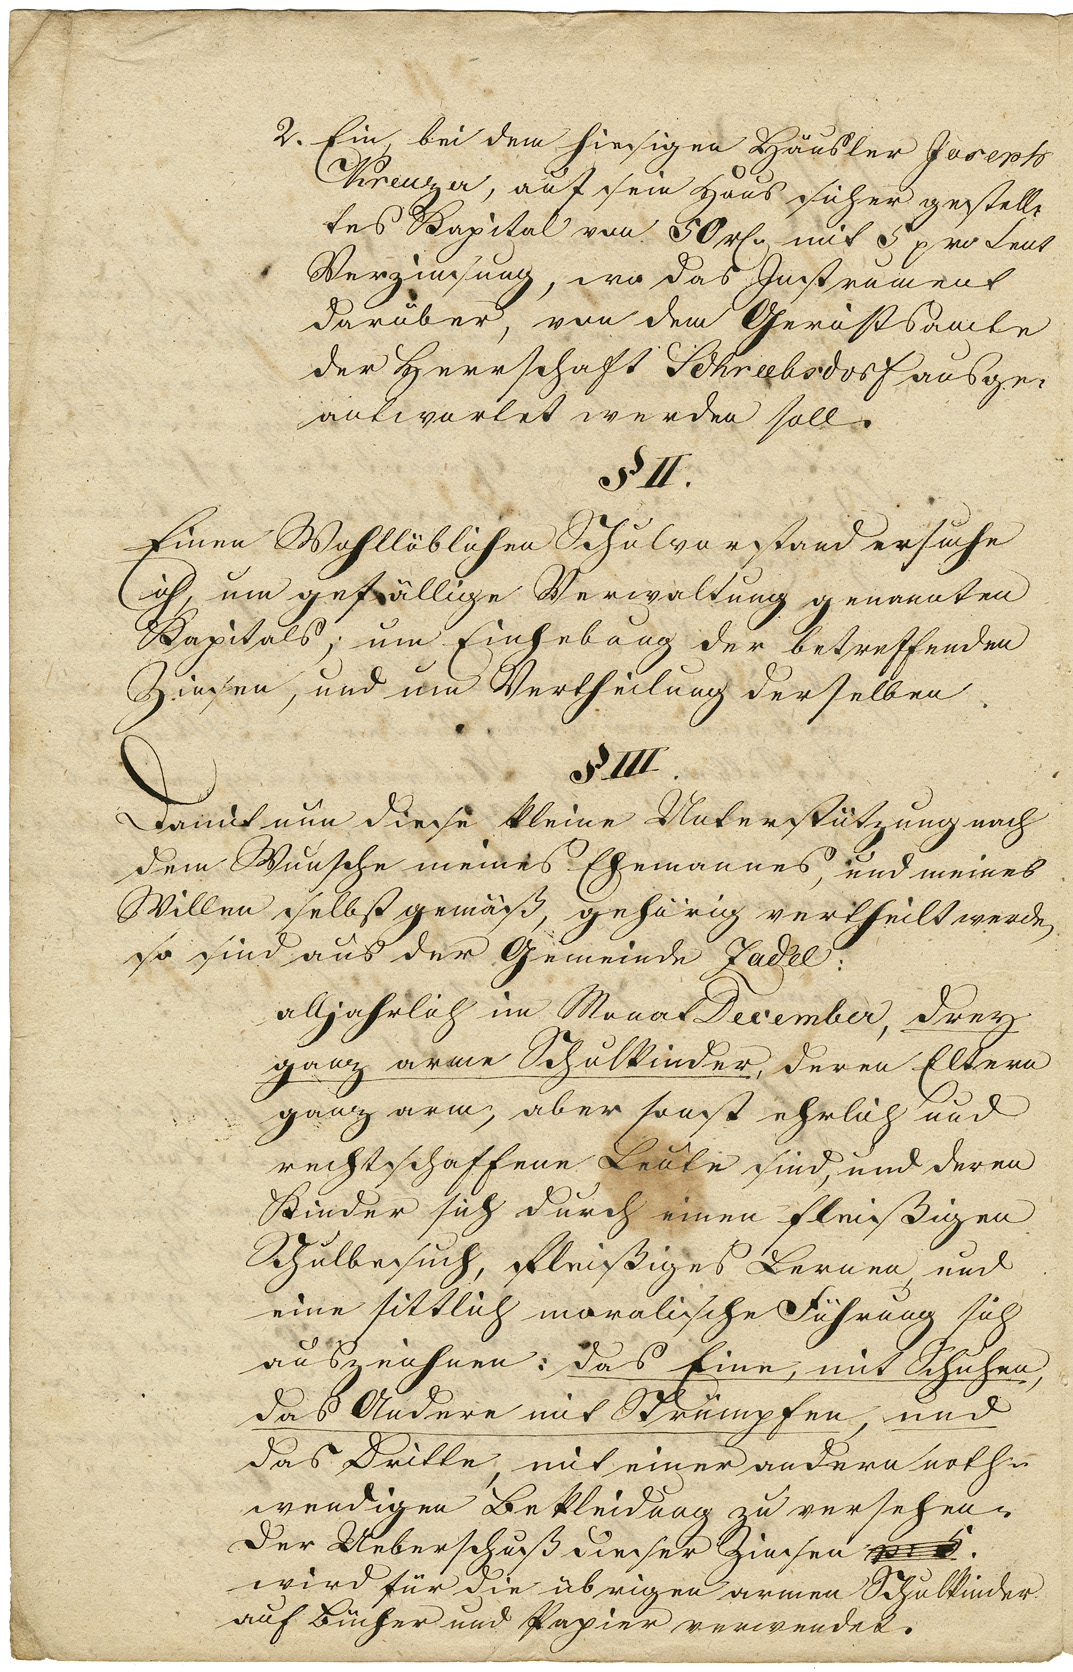 2. Ein, bei dem hiesigen Häusler Joseph
Kreuzer, auf sein Haus sicher gestell-
tes Kapital von 50 rf. mit 5 pro Cent
Verzinsung, wo das Instrument
darüber, von dem Gerichtsamte
der Herrschaft Schreebsdorf ausge-
antwortet werden soll.
§ II.
Einen Wohllöblichen Schulvorstand ersuche
ich, um gefällige Verwaltung genannten
Kapitals; um Einhebung der betreffenden
Zinsen, und um Vertheilung derselben.
§ III.
Damit nun diese kleine Unterstützung nach
dem Wunsche meines Ehemannes, und meines
Willen selbst gemäß, gehörig vertheilt werde,
so sind aus der Gemeinde Zadel:
alljahrlich im Monat December, drey
ganz arme Schulkinder, deren Eltern
ganz arm, aber sonst ehrlich und
rechtschaffene Leute sind, und deren
Kinder sich durch einen fleißigen
Schulbesuch, fleißiges Lernen, und
eine sittlich moralische Führung sich
auszeichnen: das Eine, mit Schuhen,
das Andere mit Strümpfen, und
das Dritte, mit einer andern noth-
wendigen Bekleidung zu versehen.
Der Ueberschuß dieser Zinsen
wird für die übrigen armen Schulkinder
auf Bücher und Papier verwendet.